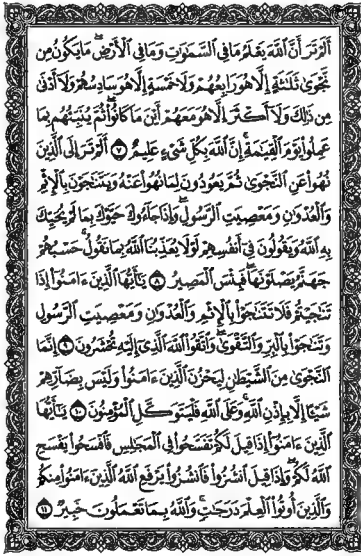 أَلَمْ تَرَ أَنَّ ٱللَّهَ يَعْلَمُ مَا فِي ٱلسَّمَٰوَٰتِ وَمَا فِي ٱلْأَرْضِ ۖ مَا يَكُونُ مِن
نَّجْوَىٰ ثَلَٰثَةٍ إِلَّا هُوَ رَابِعُهُمْ وَلَا خَمْسَةٍ إِلَّا هُوَ سَادِسُهُمْ وَلَآ أَدْنَىٰ
مِن ذَٰلِكَ وَلَآ أَكْثَرَ إِلَّا هُوَ مَعَهُمْ أَيْنَ مَا كَانُوا۟ ۖ ثُمَّ يُنَبِّئُهُم بِمَا
عَمِلُوا۟ يَوْمَ ٱلْقِيَٰمَةِ ۚ إِنَّ ٱللَّهَ بِكُلِّ شَىْءٍ عَلِيمٌ ٧ أَلَمْ تَرَ إِلَى ٱلَّذِينَ
نُهُوا۟ عَنِ ٱلنَّجْوَىٰ ثُمَّ يَعُودُونَ لِمَا نُهُوا۟ عَنْهُ وَيَتَنَٰجَوْنَ بِٱلْإِثْمِ
وَٱلْعُدْوَٰنِ وَمَعْصِيَتِ ٱلرَّسُولِ وَإِذَا جَآءُوكَ حَيَّوْكَ بِمَا لَمْ يُحَيِّكَ
بِهِ ٱللَّهُ وَيَقُولُونَ فِىٓ أَنفُسِهِمْ لَوْلَا يُعَذِّبُنَا ٱللَّهُ بِمَا نَقُولُ ۚ حَسْبُهُمْ
جَهَنَّمُ يَصْلَوْنَهَا ۖ فَبِئْسَ ٱلْمَصِيرُ ٨ يَٰٓأَيُّهَا ٱلَّذِينَ ءَامَنُوٓا۟ إِذَا
تَنَٰجَيْتُمْ فَلَا تَتَنَٰجَوْا۟ بِٱلْإِثْمِ وَٱلْعُدْوَٰنِ وَمَعْصِيَتِ ٱلرَّسُولِ
وَتَنَٰجَوْا۟ بِٱلْبِرِّ وَٱلتَّقْوَىٰ ۖ وَٱتَّقُوا۟ ٱللَّهَ ٱلَّذِىٓ إِلَيْهِ تُحْشَرُونَ ٩ إِنَّمَا
ٱلنَّجْوَىٰ مِنَ ٱلشَّيْطَٰنِ لِيَحْزُنَ ٱلَّذِينَ ءَامَنُوا۟ وَلَيْسَ بِضَآرِّهِمْ
شَيْـًٔا إِلَّا بِإِذْنِ ٱللَّهِ ۚ وَعَلَى ٱللَّهِ فَلْيَتَوَكَّلِ ٱلْمُؤْمِنُونَ ١٠ يَٰٓأَيُّهَا
ٱلَّذِينَ ءَامَنُوٓا۟ إِذَا قِيلَ لَكُمْ تَفَسَّحُوا۟ فِى ٱلْمَجَٰلِسِ فَٱفْسَحُوا۟ يَفْسَحِ
ٱللَّهُ لَكُمْ ۖ وَإِذَا قِيلَ ٱنشُزُوا۟ فَٱنشُزُوا۟ يَرْفَعِ ٱللَّهُ ٱلَّذِينَ ءَامَنُوا۟ مِنكُمْ
وَٱلَّذِينَ أُوتُوا۟ ٱلْعِلْمَ دَرَجَٰتٍ ۚ وَٱللَّهُ بِمَا تَعْمَلُونَ خَبِيرٌ ١١